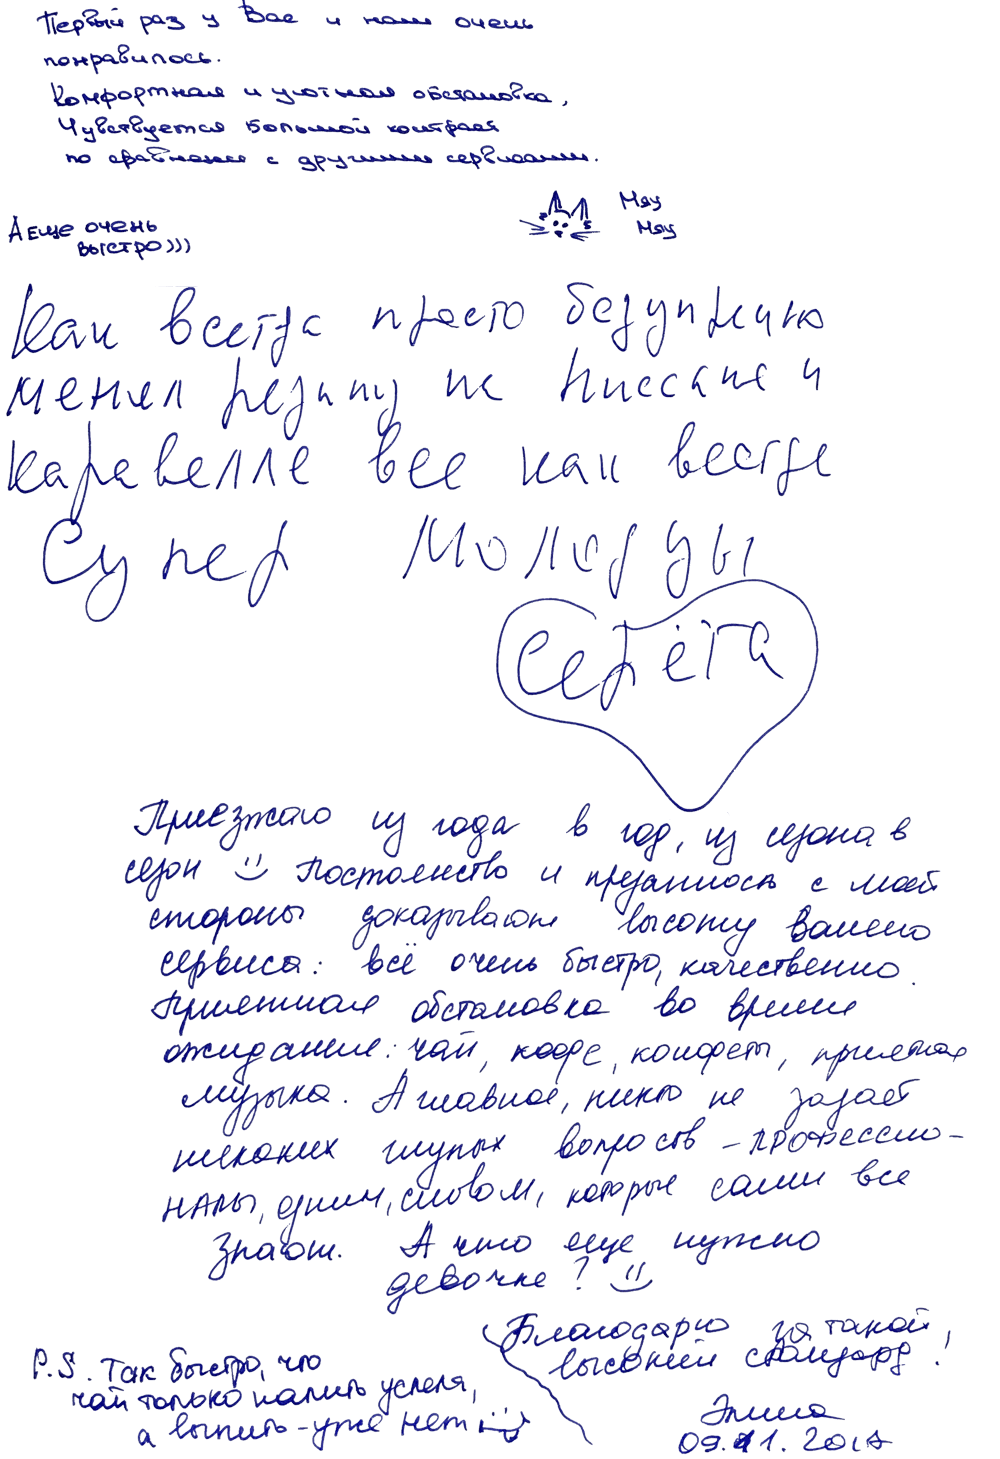 Первый раз у Вас и нам очень
понравилось.
Комфортная и уютная обстановка,
Чувствуется большой контраст
по сравнению с другими сервисами.
Мяу
Мяу
А еще очень
быстро)))
Как всегда просто безупречно
менял резину на Ниссане и
Каравелле все как всегда
Супер Молодцы
Серёга
Приезжаю из года в год, из сезона в
сезон Постоянство и преданность с моей
стороны доказывают высоту Вашего
сервиса: всё очень быстро, качественно.
Приятная обстановка во время
ожидания: чай, кофе, конфеты, приятная
музыка. А главное, никто не задает
никаких глупых вопросов - профессио-
налы, одним, словом, которые сами все
знают. А что еще нужно
девочке?
Благодарю за такой,
высокий стандарт!
P.S. Так быстро, что
чай только налить успела,
а выпить - уже нет
Элина
09.11.2017